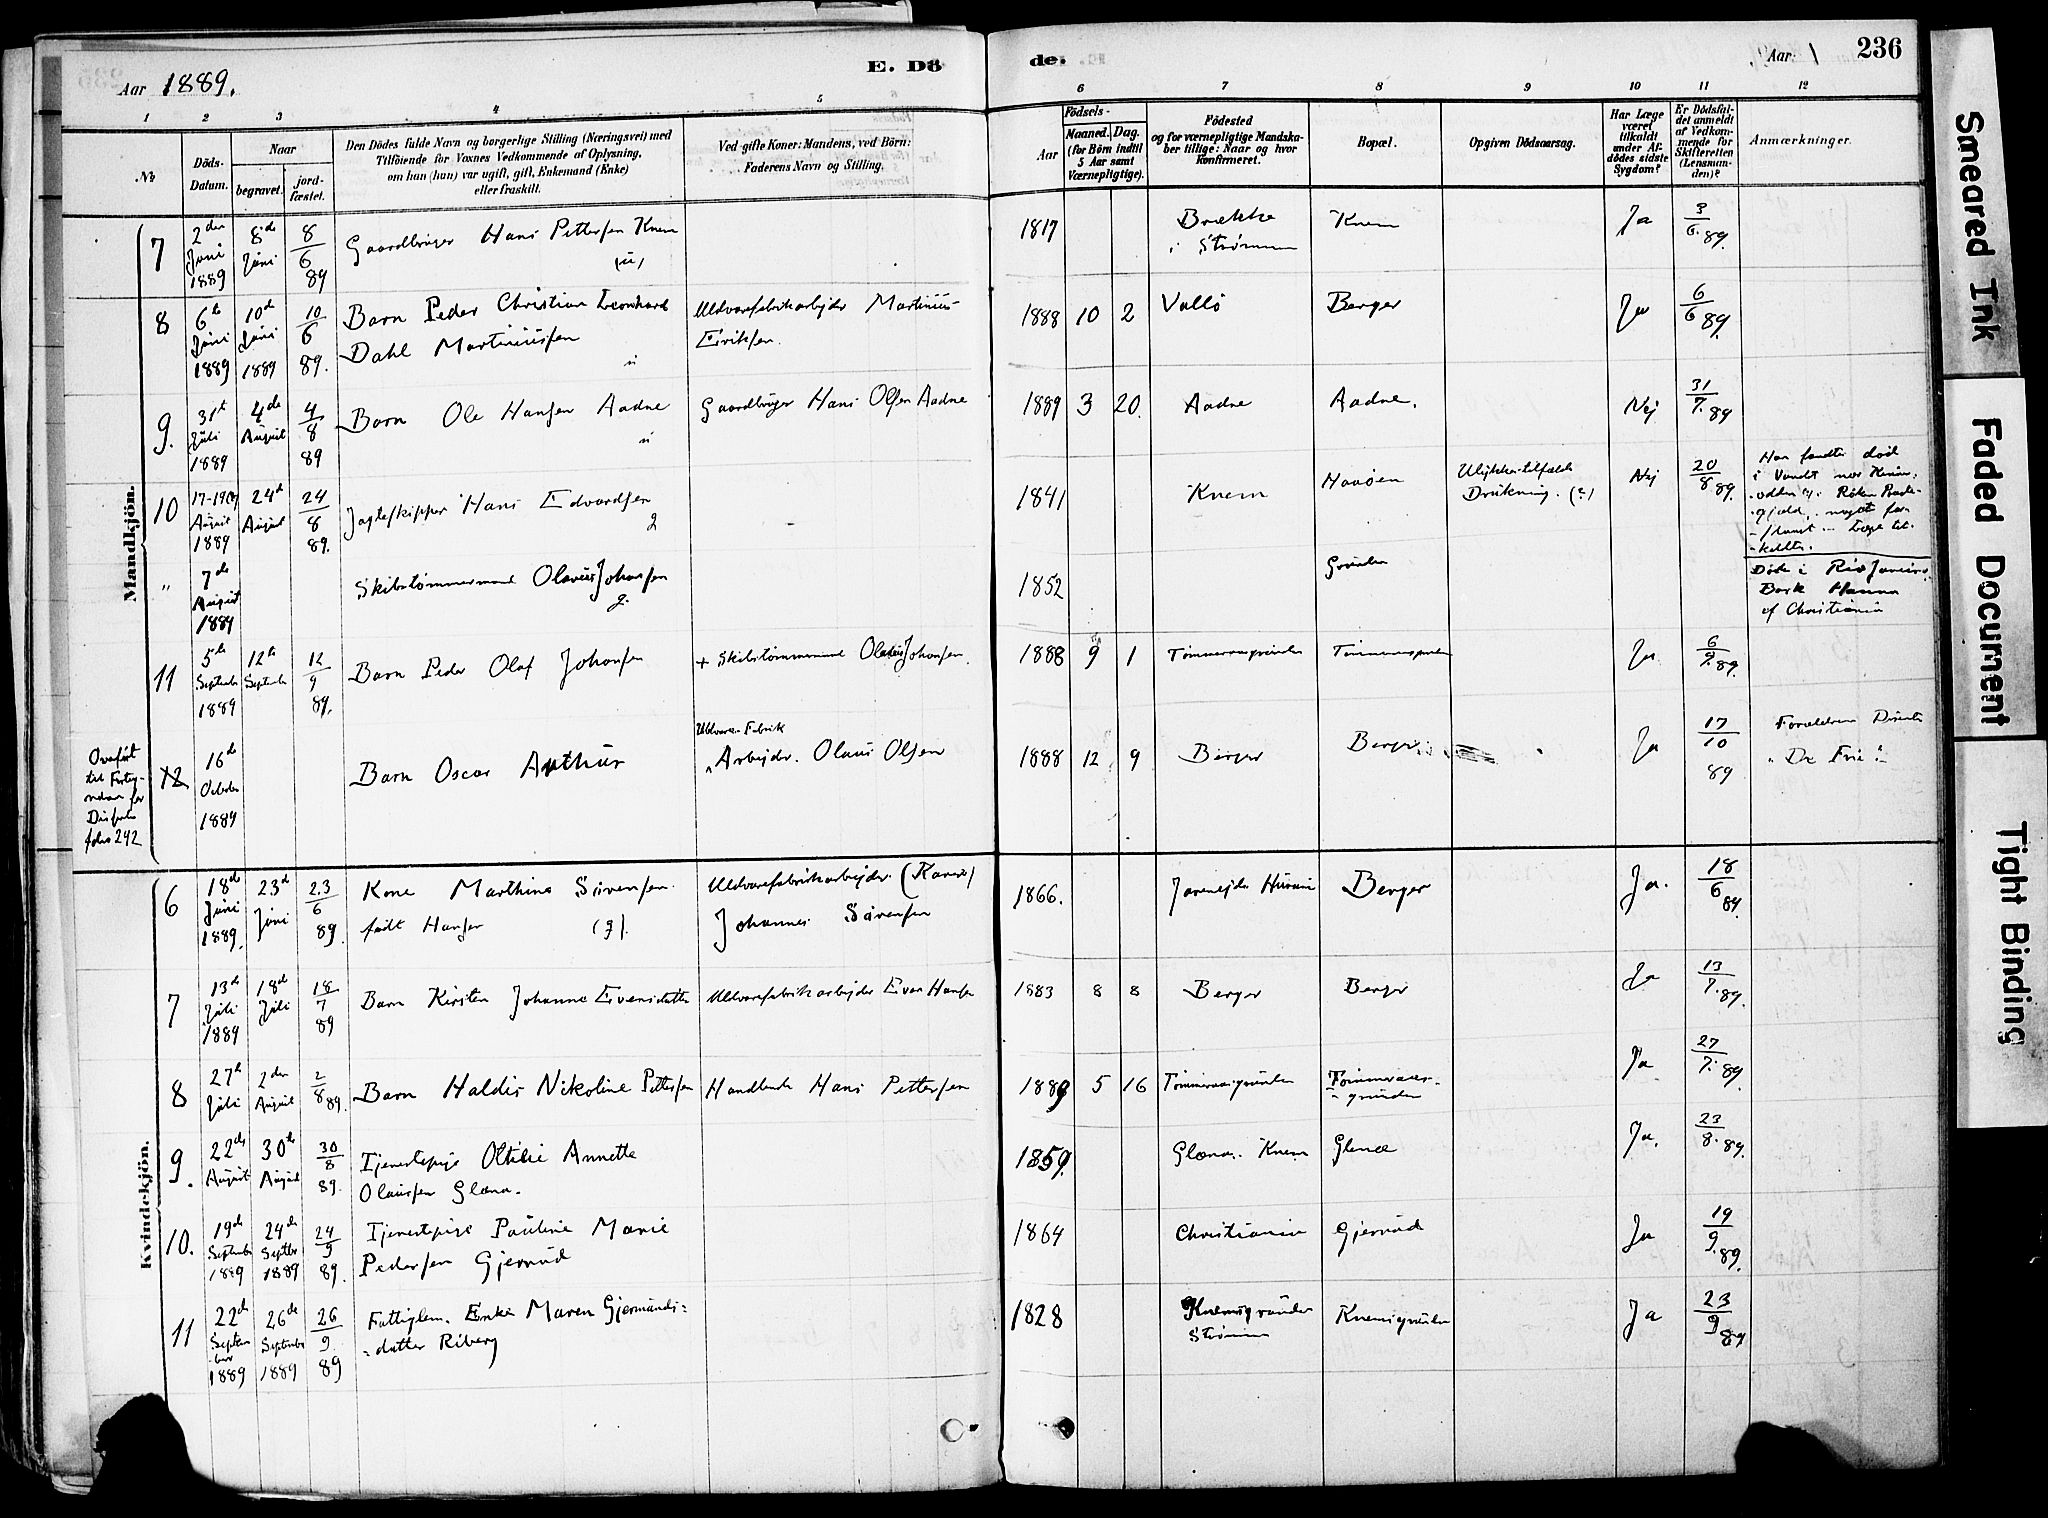 Aar 1889.
E. Dö
de.
Aar 1
236
1 2 3 4 5 6 7 8 9 10 11 12
No
Döds-Datum.
Naar
begravet.
jordfæstet.
Den Dödes fulde Navn og borgerlige Stilling (Næringsvei) med
Tilföiende for Voxnes Vedkommende af Oplysning,
om han (hun) var ugift, gift, Enkemand (Enke)
eller fraskilt.
Ved gifte Koner: Mandens, ved Börn:
Faderens Navn og Stilling.
Födsels-
Aar
Maaned. Dag.
(for Börn indtil
5 Aar samt
Værnepligtige).
Födested
og for værnepligtige Mandska-
ber tillige: Naar og hvor
Konfirmeret.
Bopæl.
Opgiven Dödsaarsag.
Har Læge
været
tilkaldt
under Af-
dödes sidste
Sygdom?
Er Dödsfal-
det anmeldt
af Vedkom-
mende for
Skifteretten
(Lensman-
den)?
Anmærkninger.
Mandkjön.
7 2den Juni 1889 8de Juni 8/6 89 Gaardbruger Hans Pettersen Knem 1817 Brække i Strømm Knem Ja 3/6.89.
8 6te Juni 1889 10de Juni 1889 10/6 89. Barn Peder Christian Leonhard Uldvarefabrikarbejder Martinius 1888 10 2 Vallö Berger Ja 6/6 89.
Dahl Martiniussen u Eriksen.
9. 31te Juli 1889 4de August 4/8 89 Barn Ole Hansen Aadne u Gaardbruger Hans Olsen Aadne 1889 3 20. Aadne Aadne. Nej 31/7.89
10 17-19(?) August 1889 24de August 24/8 89. Jagtskipper Hans Edvardsen g 1841 Knem Haaöen Ulykkestilfælde Drukning. (?) Nej 20/8 89.
Han fandtes død
i Vandt nær
Røken Præste-
gjeld
" 7de August 1889 Skibstømmermand Olavus Johansen g. 1852 Grunden Døde i Rio Janeiro.
Bark Hanna
af Christiania
11 5te September 1889 12te September 12/9 89. Barn Peder Olaf Johansen + Skibstømmermand Olavus Johansen. 1888 9 1 Tømmeraasgrunden Ja 6/9.89.
Overført
til Forteg-
nelsen for
Dissentere
folio 242
12 16de October 1889 Barn Oscar Arthur Uldvare-Fabrik
Arbejder. Olaus Olsen 1888 12 9 Berger Berger Ja 17/10 89 Forældrene Dissentere
"De Frie".
Kvindekjön.
6 18de Juni 1889. 23de Juni 23/6 89. Kone Marthine Sørensen. Uldvarefabrikarbejder 1866. Berger Ja. 18/6 89.
født Hansen (g). Johannes Sörensen
7 13de Juli 1889 18de Juli 18/7 89 Barn Kirsten Johanne Evensdatter Uldvarefabrikarbejder Even Hansen 1883 8 8 Berger Berger Ja 13/7.89.
8 27de Juli 2den August 2/8 89. Barn Haldis Nikoline Pettersen Handlende Hans Pettersen 1889 5 16 Tømmeraasgrunden Tømmeraas-
grunden Ja 27/7.89
9. 22de August 30te August 30/8 89. Tjenestepige Ottilie Annette
Olaussen Glæna. 1859. Glæna. Knem Glenæ Ja. 23/8.89.
10. 19de September 1889 24de Septbr 1889 24/9 89. Tjenestepige Pauline Marie
Pedersen Gjerrud 1864 Christiania Gjerrud Ja 19/9.89.
11 22de September 1889 26de September 1889 26/9. 89 Fattiglem. Enke Maren Gjermunds-
datter Riberg 1828 Knemsgrunden
Strømm Knemsgrunden Ja 23/9 89
Smeared Ink
Faded Document
Tight Binding